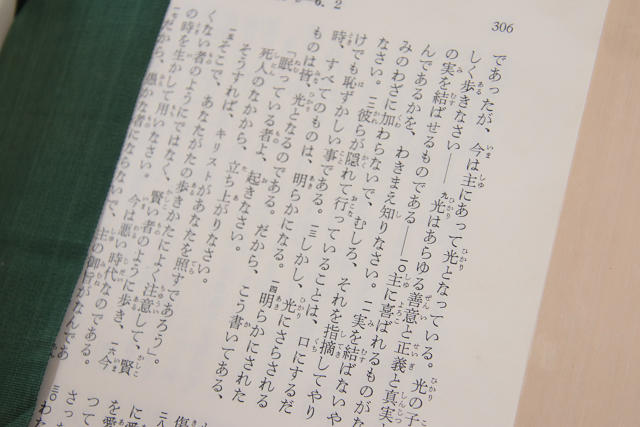 306
6. 2
であったが、今は主にあって光となっている。光の子
しく歩きなさい――九光はあらゆる善意と正義と真実
の実を結ばせるものである――一〇主に喜ばれるものがな
んであるかを、わきまえ知りなさい。一一実を結ばないや
みのわざに加わらないで、むしろ、それを指摘してやり
なさい。一二彼らが隠れて行っていることは、口にするだ
けでも恥ずかしい事である。一三しかし、光にさらされる
時、すべてのものは、明らかになる。一四明らかにされた
ものは皆、光となるのである。だから、こう書いてある、
「眠っている者よ、起きなさい。
死人のなかから、立ち上がりなさい。
そうすれば、キリストがあなたを照すであろう」。
一五そこで、あなたがたの歩きかたによく注意して、賢
くない者のようにではなく、賢い者のように歩き、一六今
の時を生かして用いなさい。今は悪い時代なのである。
一七だから、愚かな者にならないで、主の御旨がなんであ